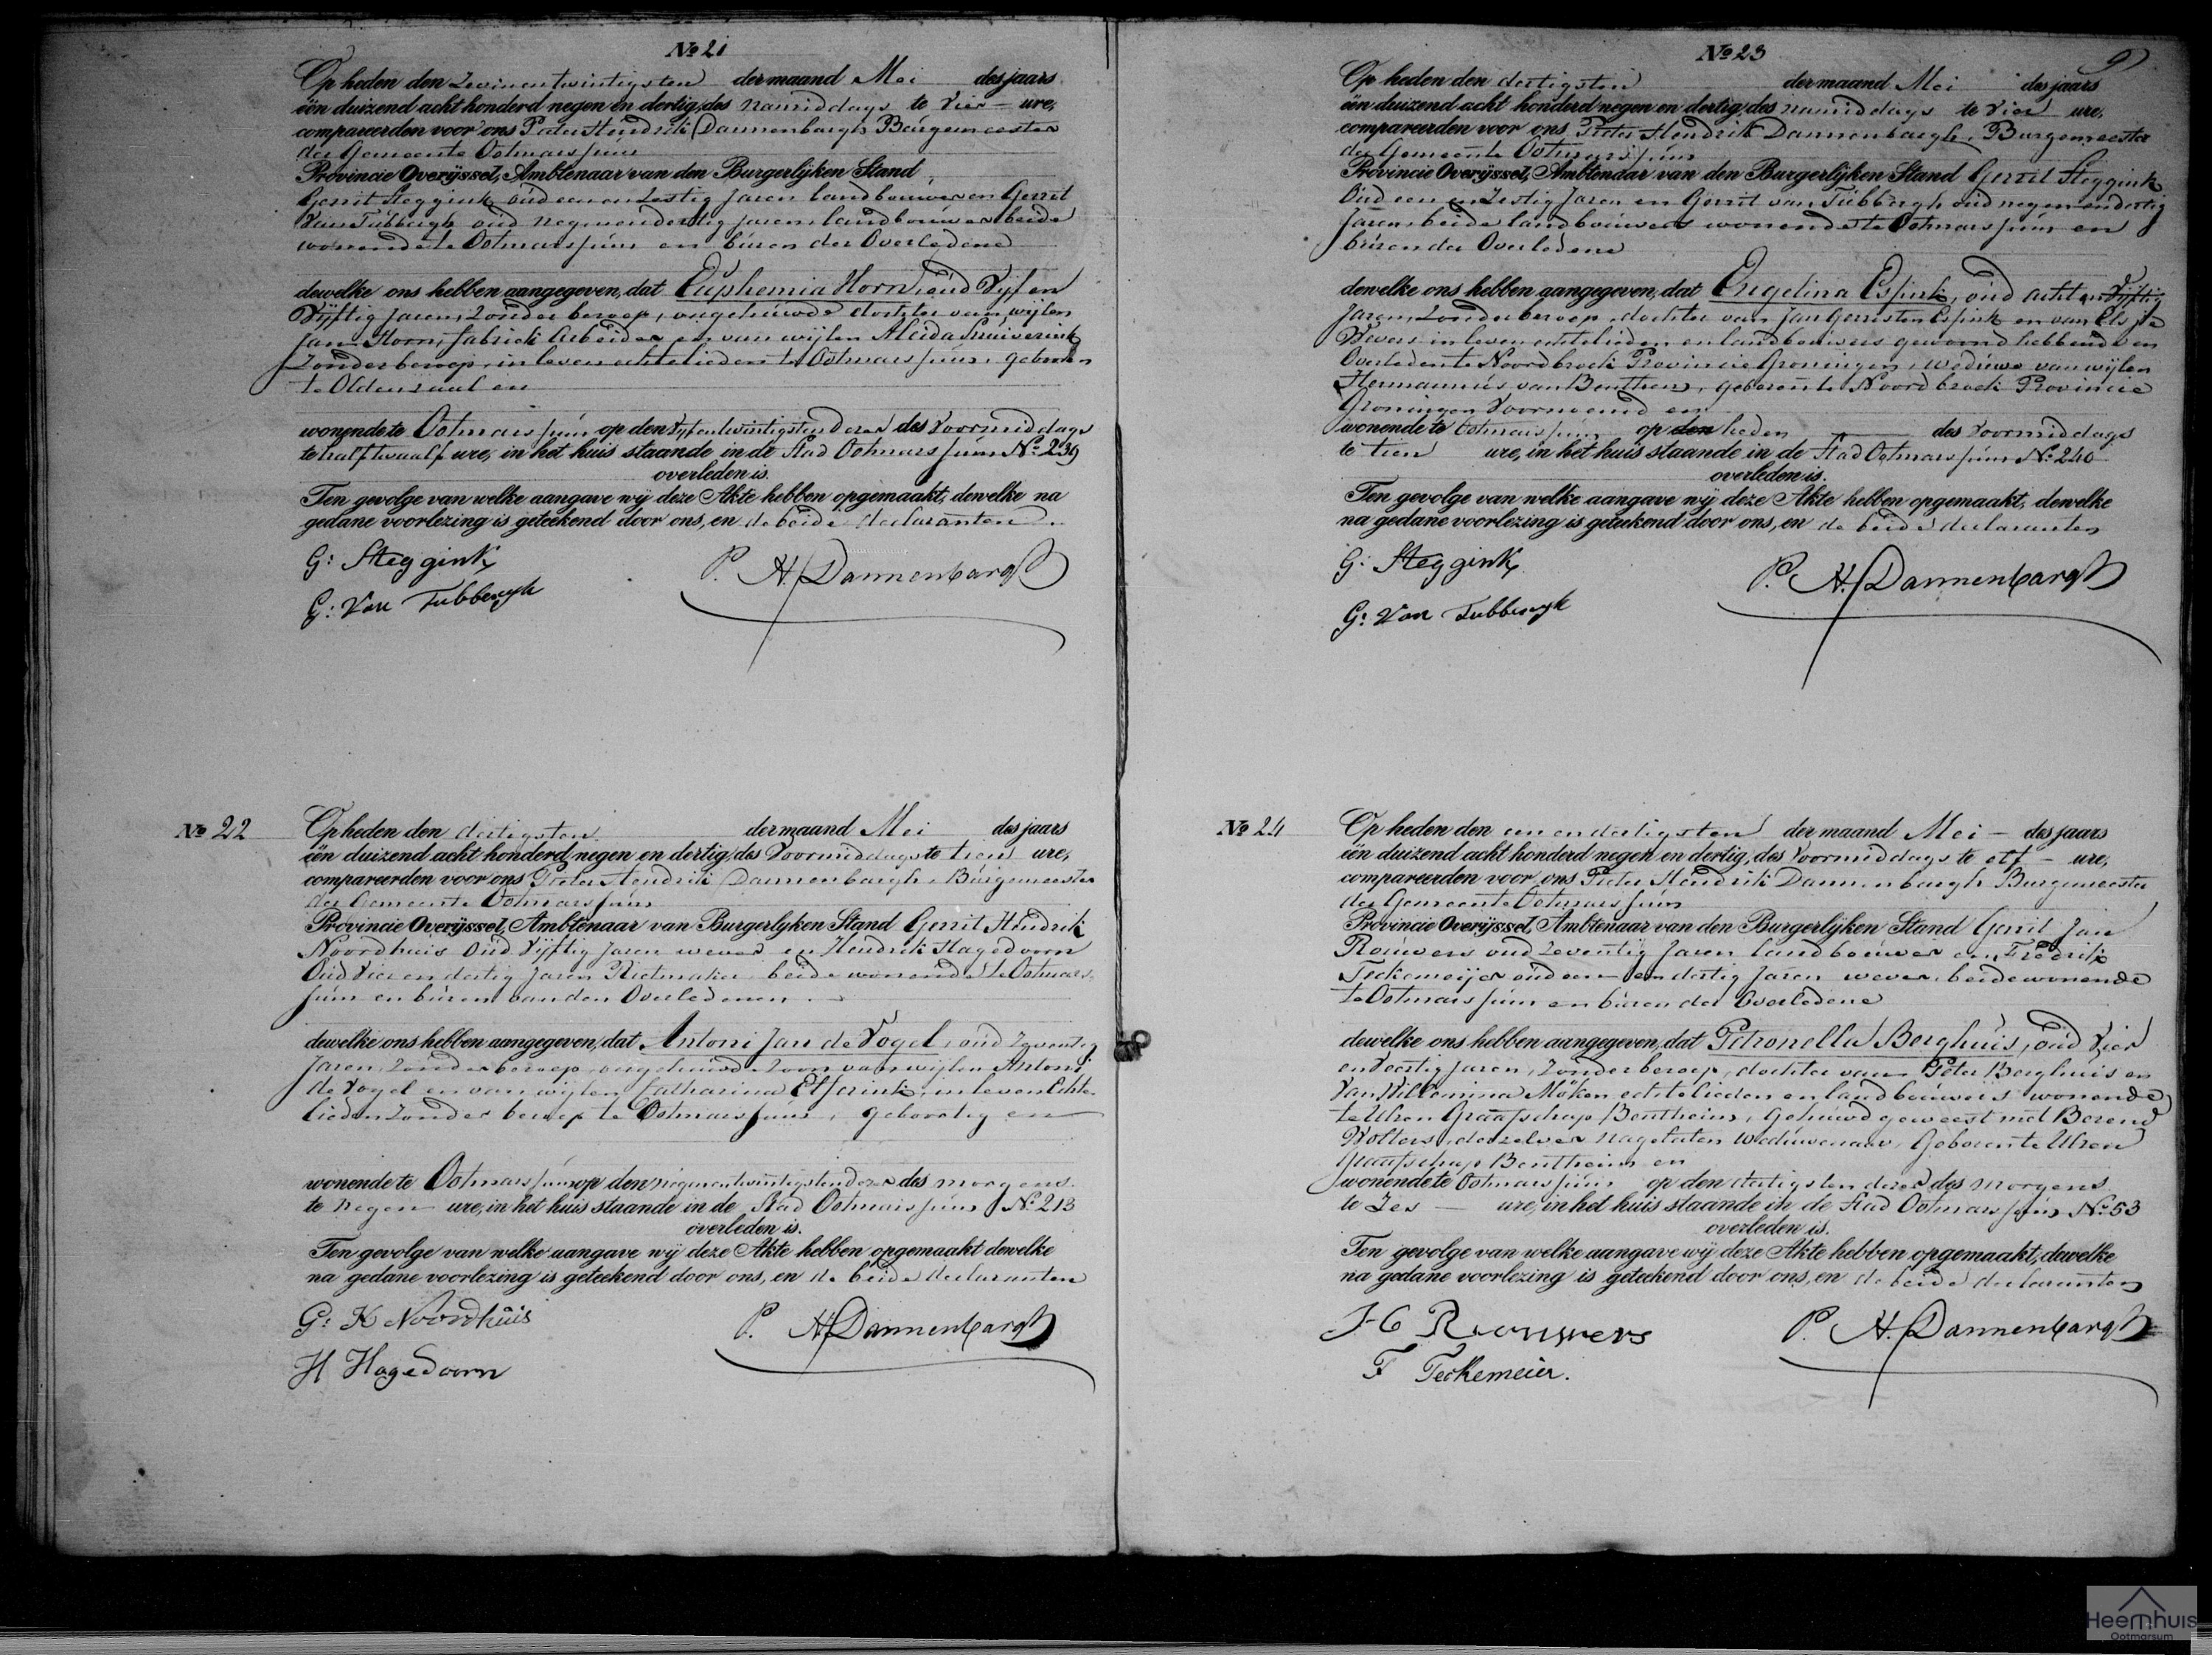 No 21
Op heden den Zevenentwintigsten der maand Mei des jaars
één duizend acht honderd negen en dertig, des namiddags te Vier ure,
compareerden voor ons Pieter Hendrik Dannenbargh Burgemeester
der Gemeente Ootmarssum
Provincie Overijssel, Ambtenaar van den Burgerlijken Stand
Gerrit Steggink oud een en Zestig Jaren landbouwer en Gerrit
Van Tubbergh oud negenendertig jaren landbouwer beide
wonende te Ootmarssum en buren der Overledene
dewelke ons hebben aangegeven, dat Euphemia Horn, oud Vijf en
Vijftig Jaren, Zonder beroep, ongehuwde dochter van wijlen
Jan Horn, fabriek Arbeider en van wijlen Aleida
Zonder beroep, in leven echtelieden te Ootmarssum, geboren
te Oldenzaal en
wonende te Ootmarssum op den Vijfentwintigsten dezer des Voormiddags
te half twaalf ure, in het huis staande in de Stad Ootmarssum No 239
overleden is.
Ten gevolge van welke aangave wij deze Akte hebben opgemaakt, dewelke na
gedane voorlezing is geteekend door ons, en de beide declaranten
G: Steggink
P. H. Dannenbargh
G: Van Tubbergh
No 22
Op heden den dertigsten der maand Mei des jaars
één duizend acht honderd negen en dertig, des Voormiddags te tien ure,
compareerden voor ons Pieter Hendrik Dannenbargh, Burgemeester
der Gemeente Ootmarssum
Provincie Overijssel, Ambtenaar van Burgerlyken Stand Gerrit Hendrik
Noordhuis Oud Vijftig Jaren wever en Hendrik Hagedoorn
Oud Vier en dertig Jaren Rietmaker beide wonende te Ootmars-
sum en buren van den Overledenen.
dewelke ons hebben aangegeven, dat Antoni Jan de Vogel, oud Zeventig
Jaren, Zonder beroep, ongehuwde Zoon van wijlen Antoni
de Vogel en van wijlen Catharina Elferink, in leven Echte-
lieden Zonder beroep te Ootmarssum, geboortig en
wonende te Ootmarssum op den negenentwintigsten dezer des morgens
te negen ure, in het huis staande in de Stad Ootmarssum No 213
overleden is.
Ten gevolge van welke aangave wij deze Akte hebben opgemaakt dewelke
na gedane voorlezing is geteekend door ons, en de beide declaranten
G: H Noordhuis
P. H. Dannenbargh
H Hagedoorn
9
No 23
Op heden den dertigsten der maand Mei des jaars
één duizend acht honderd negen en dertig, des namiddags te Vier ure,
compareerden voor ons Pieter Hendrik Dannenbargh, Burgemeester
der Gemeente Ootmarssum
Provincie Overijssel, Ambtenaar van den Burgerlijken Stand Gerrit Steggink
Oud een en Zestig Jaren en Gerrit van Tubbergh oud negen en dertig
Jaren, beide landbouwers wonende te Ootmarssum en
buren der Overledene
dewelke ons hebben aangegeven, dat Engelina Essink, oud acht en Vijftig
Jaren, Zonder beroep, dochter van Jan Gerristen Essink en van Elsje
Wevers in leven echtelieden en landbouwers gewoond hebbend en
Overleden te Noordbroek Provincie Groningen, weduwe van wijlen
Hermannus van Benthem, geboren te Noordbroek Provincie
Groningen Voornoemd en
wonende te Ootmarssum op den heden des Voormiddags
te tien ure, in het huis staande in de Stad Ootmarssum No 240
overleden is.
Ten gevolge van welke aangave wij deze Akte hebben opgemaakt, dewelke
na gedane voorlezing is geteekend door ons, en de beide declaranten
G: Steggink
P. H. Dannenbargh
G: Van Tubbergh
No 24
Op heden den een en dertigsten der maand Mei des jaars
één duizend acht honderd negen en dertig, des Voormiddags te elf ure,
compareerden voor ons Pieter Hendrik Dannenbargh Burgemeester
der Gemeente Ootmarssum
Provincie Overijssel, Ambtenaar van den Burgerlijken Stand Gerrit Jan
Rouwers oud Zeventig Jaren landbouwer en Fredrik
Teckemeijer oud een en dertig Jaren wever, beide wonende
te Ootmarssum en buren der Overledene
dewelke ons hebben aangegeven, dat Petronella Berghuis, oud Vier
en Veertig Jaren, Zonder beroep, dochter van Peter Berghuis en
Van Willemina Möken echtelieden en landbouwers wonende
te Ulsen Graafschap Bentheim, Gehuwd geweest met Berend
Wolters, derzelver nagelaten weduwenaar, Geboren te Ulsen
Graafschap Bentheim en
wonende te Ootmarssum op den dertigsten dezer des Morgens
te Zes ure, in het huis staande in de Stad Ootmarssum No 53
overleden is.
Ten gevolge van welke aangave wij deze Akte hebben opgemaakt, dewelke
na gedane voorlezing is geteekend door ons, en de beide declaranten
Rouwers
P. H. Dannenbargh
F Teckemeier.
Heemhuis
Ootmarsum